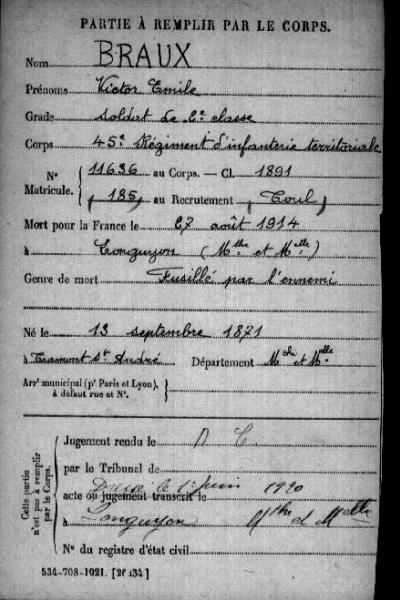 PARTIE À REMPLIR PAR LE CORPS.
Nom BRAUX
Prénoms Victor Emile
Grade Soldat de 2e classe
Corps 45e Régiment d'infanterie territoriale
N° Matricule. { 11636 au Corps. — Cl. 1891
( 185 ) au Recrutement ( Toul )
Mort pour la France le 27 août 1914
à Longuyon (Mthe et Mlle)
Genre de mort Fusillé par l'ennemi
Né le 13 septembre 1871
à Tramont St André Département Mthe et Mlle
Arrt municipal (pr Paris et Lyon), à défaut rue et N°. }
Cette partie n'est pas à remplir par le Corps.
Jugement rendu le
par le Tribunal de
le 1er Juin 1920
acte ou jugement transcrit le
à Longuyon Mthe et Mlle
N° du registre d'état civil
534-708-1921. [26434]